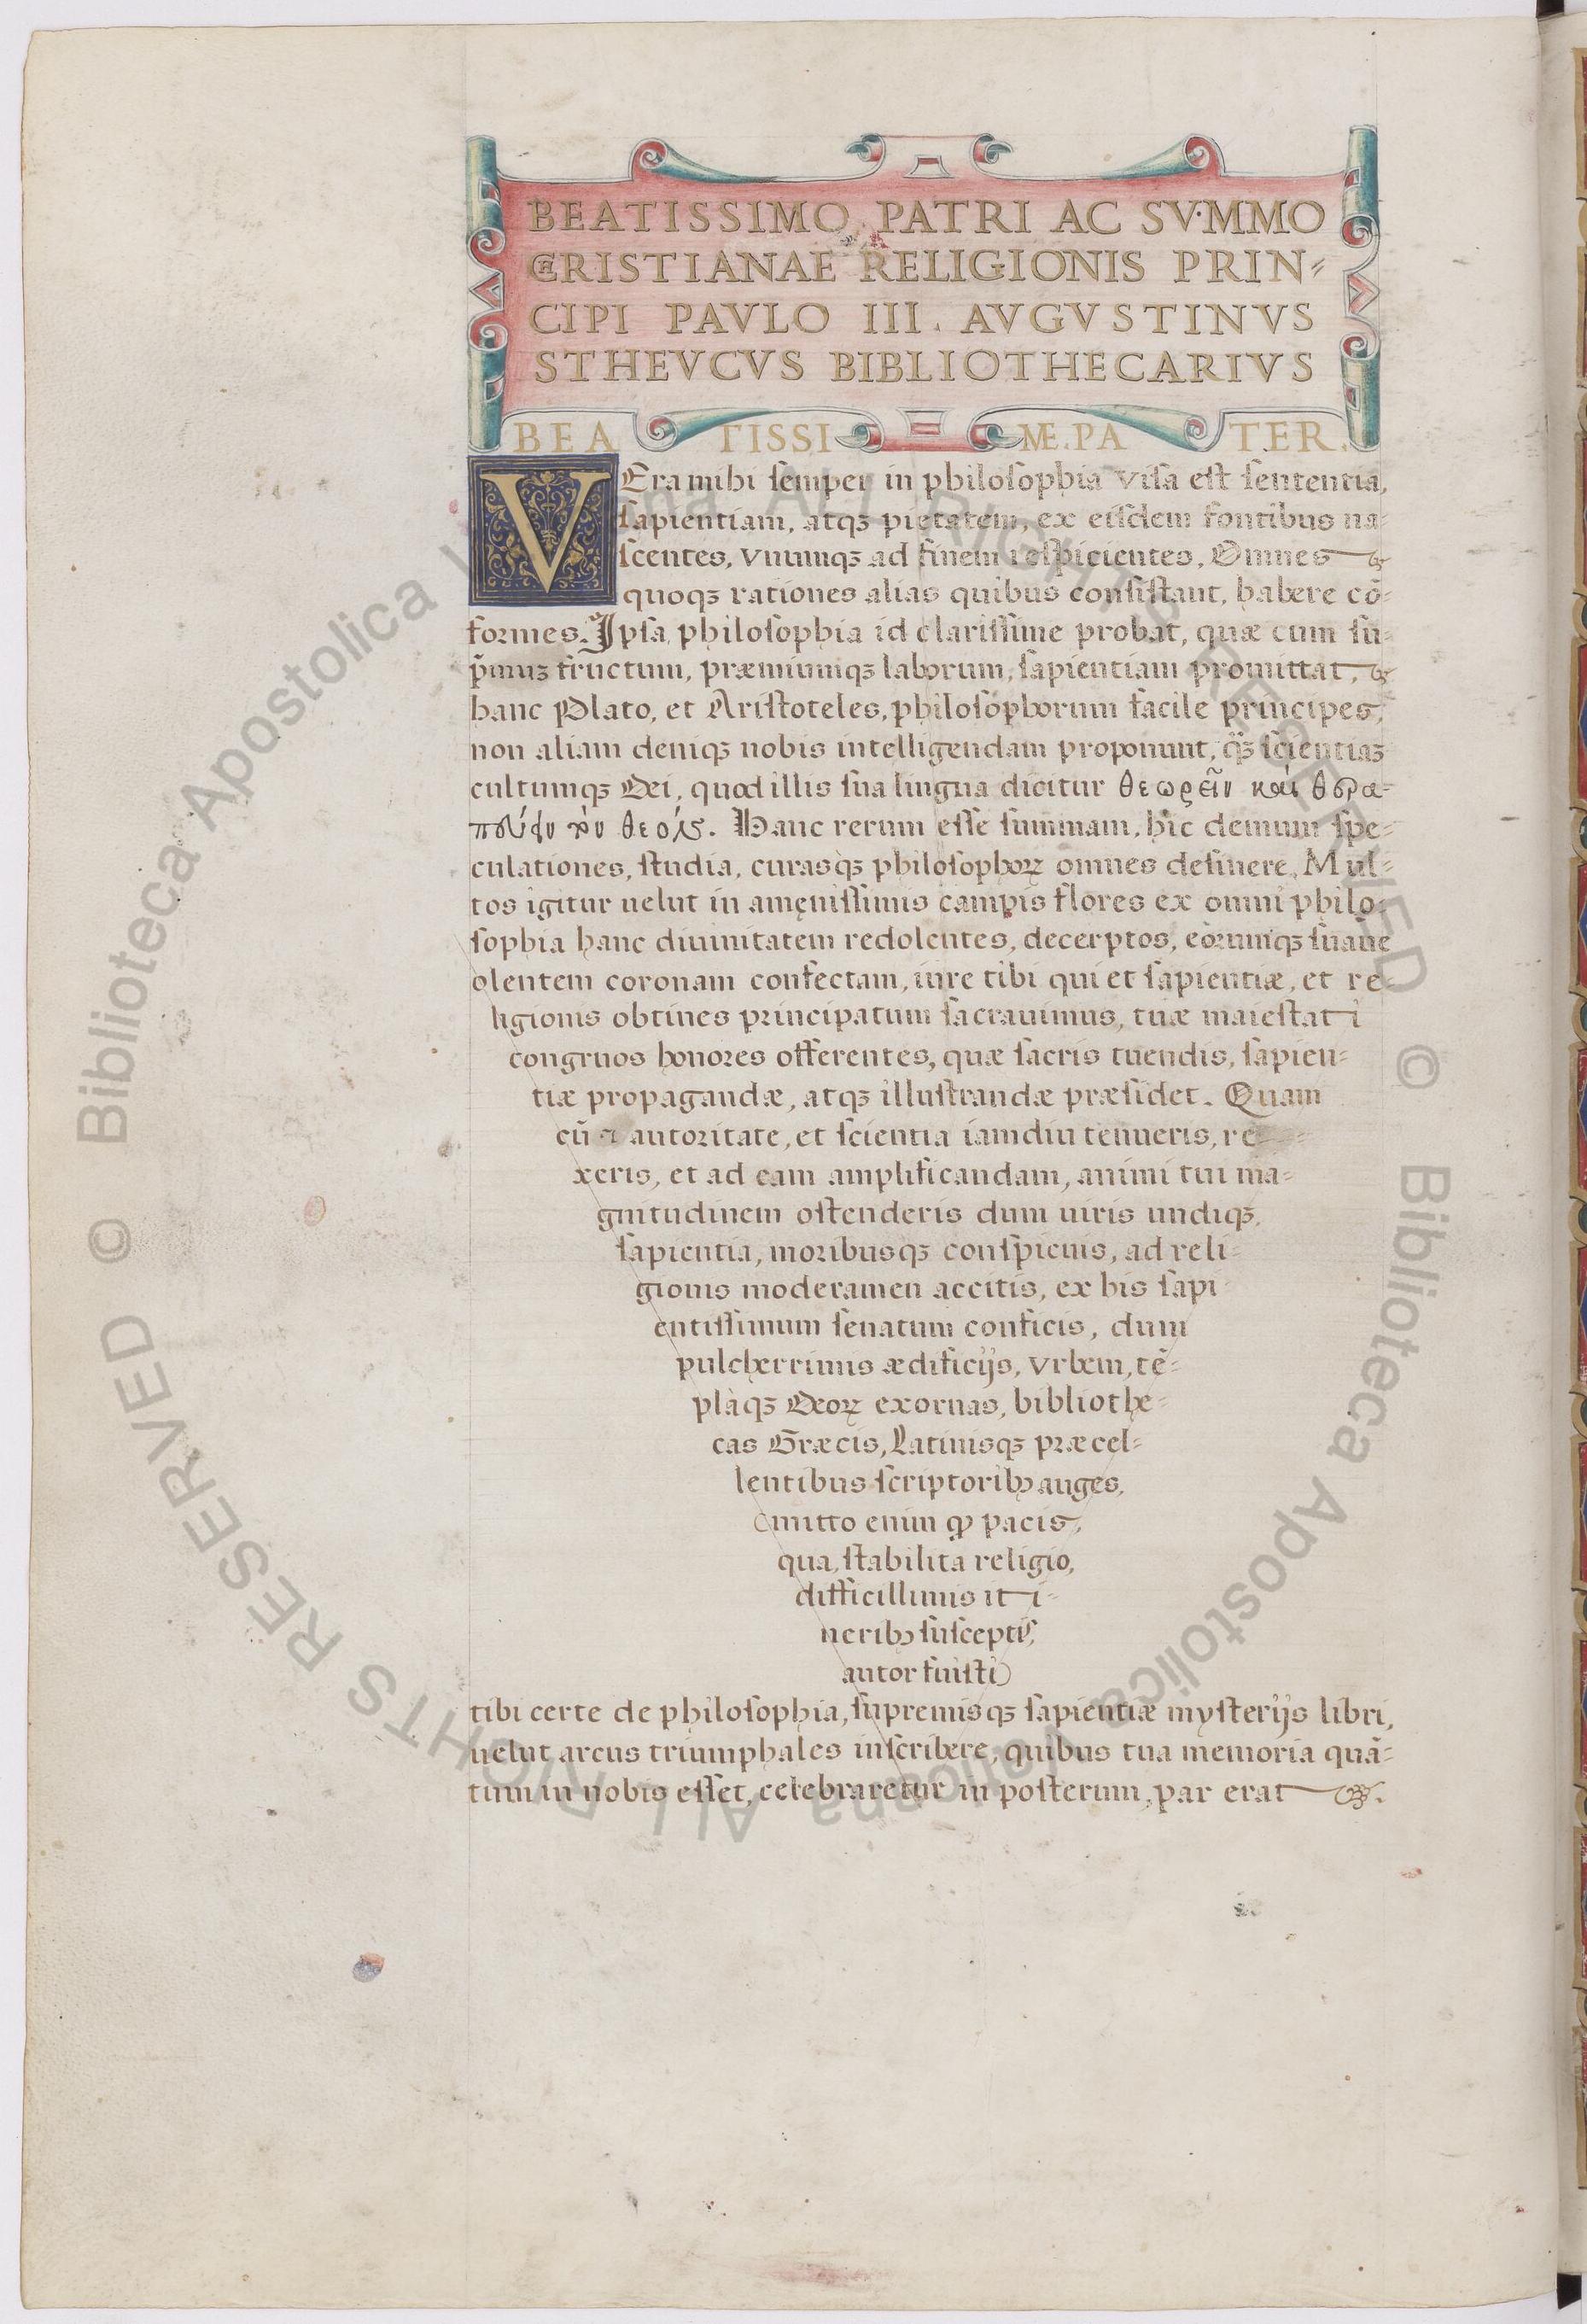 BEATISSIMO PATRI AC SVMMO
CHRISTIANAE RELIGIONIS PRIN=
CIPI PAVLO III. AVGVSTINVS
STHEVCVS BIBLIOTHECARIVS
BEATISSIME PATER.
VEra mihi semper in philosophia visa est sententia,
sapientiam, atqꝫ pietatem, ex eisdem fontibus na=
scentes, vnumqꝫ ad finem respicientes, Omnes
quoqꝫ rationes alias quibus consistant, habere cõ=
formes. Ipsa philosophia id clarissime probat, quæ cum su=
p̃muꝫ fructum, præmiumqꝫ laborum, sapientiam promittat,
hanc Plato, et Aristoteles, philosophorum facile principes,
non aliam deniqꝫ nobis intelligendam proponunt, q̃ꝫ scientiaꝫ
cultumqꝫ Dei, quod illis sua lingua dicitur θεωρεῖν καὶ θερα=
πεύειν τὸν θεόν. Hanc rerum esse summam, hic demum spe=
culationes, studia, curasqꝫ philosophoꝝ omnes desinere. Mul=
tos igitur uelut in amęnissimis campis flores ex omni philo=
sophia hanc diuinitatem redolentes, decerptos, eorumqꝫ suaue
olentem coronam confectam, iure tibi qui et sapientiæ, et re=
ligionis obtines principatum sacrauimus, tuæ maiestati
congruos honores offerentes, quæ sacris tuendis, sapien=
tiæ propagandæ, atqꝫ illustrandæ præsidet. Quam
cũ autoritate, et scientia iamdiu tenueris, re=
xeris, et ad eam amplificandam, animi tui ma=
gnitudinem ostenderis dum uiris undiqꝫ
sapientia, moribusqꝫ conspicuis, ad reli=
gionis moderamen accitis, ex his sapi
entissimum senatum conficis, dum
pulcherrimis ædificijs, vrbem, tẽ=
plaqꝫ Deoꝝ exornas, bibliothe=
cas Græcis, Latinisqꝫ præcel=
lentibus scriptoribꝫ auges,
(mitto enim ꝙ pacis,
qua, stabilita religio,
difficillimis iti=
neribꝫ susceptis,
autor fuisti)
tibi certe de philosophia, supremisqꝫ sapientiæ mysterijs libri,
uelut arcus triumphales inscribere, quibus tua memoria quã=
tum in nobis esset, celebraretur in posterum, par erat.
© Biblioteca Apostolica Vaticana ALL RIGHTS RESERVED
© Biblioteca Apostolica Vaticana ALL RIGHTS RESERVED